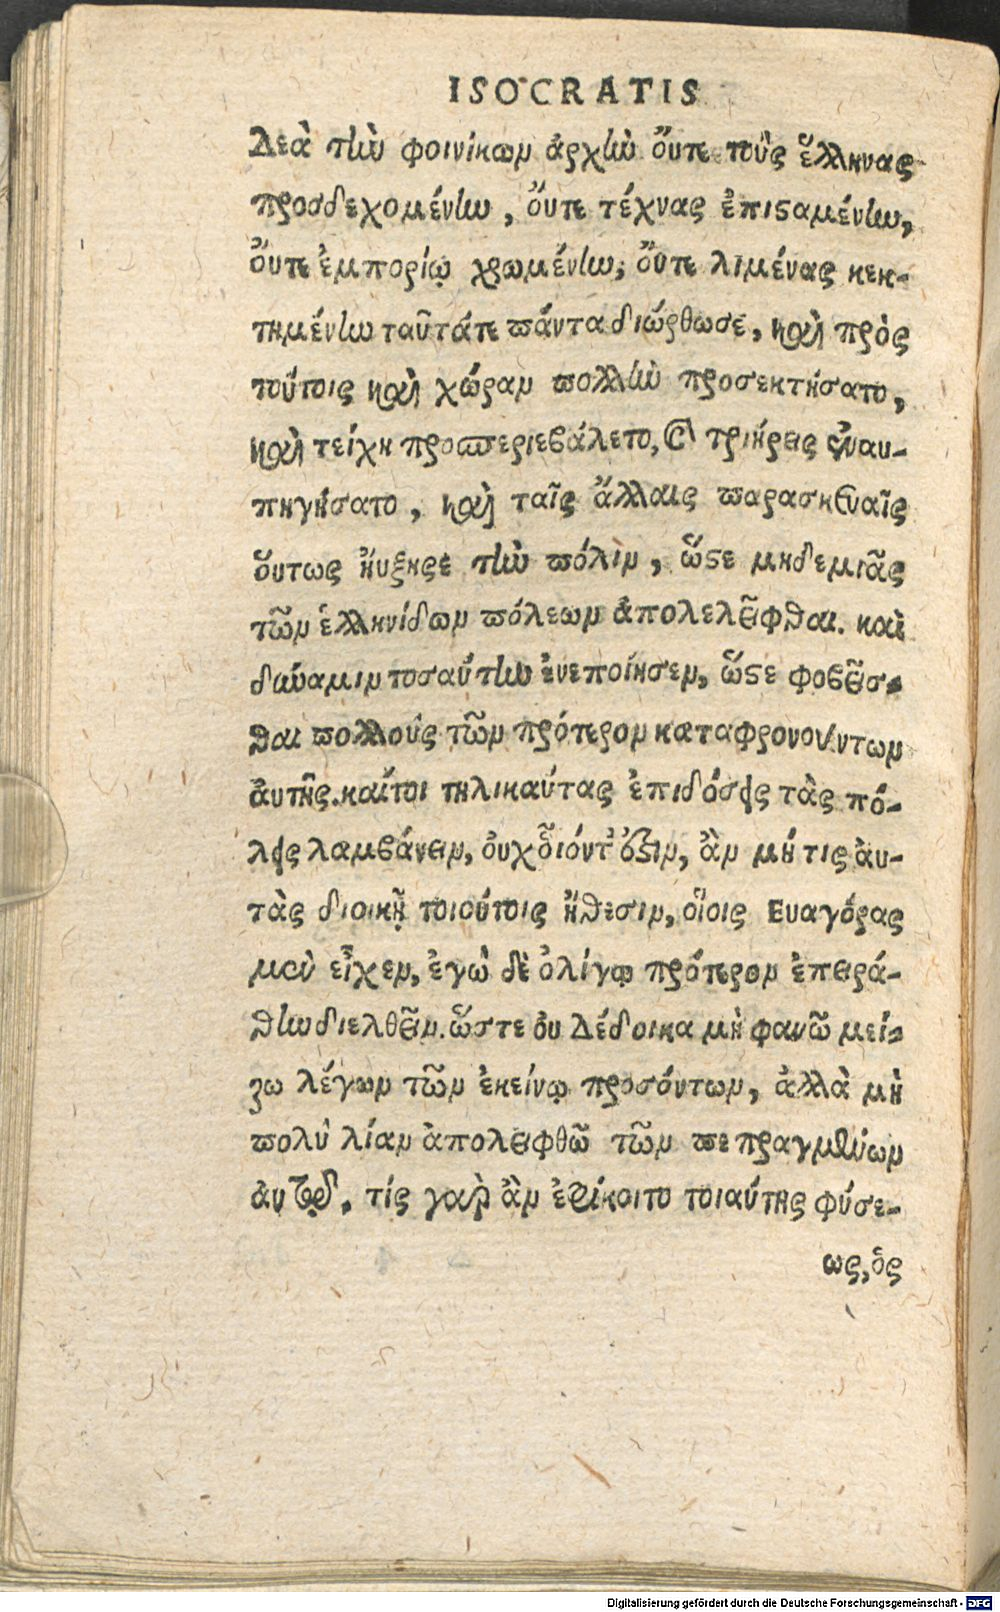 ISOCRATIS
Δεὰ τὴν φοινίκων ἀρχὴν οὔτε τοὺς ἕλληνας
προσδεχομένην, οὔτε τέχνας ἐπισταμένην,
οὔτε ἐμπορίῳ χρωμένην, οὔτε λιμένας κεκ-
τημένην ταῦτάτε πάντα διώρθωσε, καὶ πρὸς
τούτοις καὶ χώραν πολλὴν προσεκτήσατο,
καὶ τείχη προσπεριεβάλετο, καὶ τριήρεις ἐναυ-
πηγήσατο, καὶ ταῖς ἄλλαις παρασκευαῖς
οὕτως ἤυξησε τὴν πόλιν, ὥστε μηδεμιᾶς
τῶν ἑλληνίδων πόλεων ἀπολελεῖφθαι. καὶ
δύναμιν τοσαύτην ἐνεποίησεν, ὥστε φοβεῖσ-
θαι πολλοὺς τῶν πρότερον καταφρονούντων
ἀυτῆς. καίτοι τηλικαύτας ἐπιδόσεις τὰς πό-
λεις λαμβάνειν, ὀυχ οἷόντ' ἐστὶν, ἂν μή τις ἀυ-
τὰς διοικῇ τοιούτοις ἤθεσιν, οἵοις Ευαγόρας
μὲν εἶχεν, ἐγὼ δὲ ὀλίγῳ πρότερον ἐπειρά-
θην διελθεῖν. ὥστε ὀυ Δέδοικα μὴ φανῶ μεί-
ζω λέγων τῶν ἐκείνῳ προσόντων, ἀλλὰ μὴ
πολὺ λίαν ἀπολειφθῶ τῶν πεπραγμένων
ἀυτῷ. τίς γὰρ ἂν ἐφίκοιτο τοιαύτης φύσε-
ως, ὃς
Digitalisierung gefördert durch die Deutsche Forschungsgemeinschaft - DFG